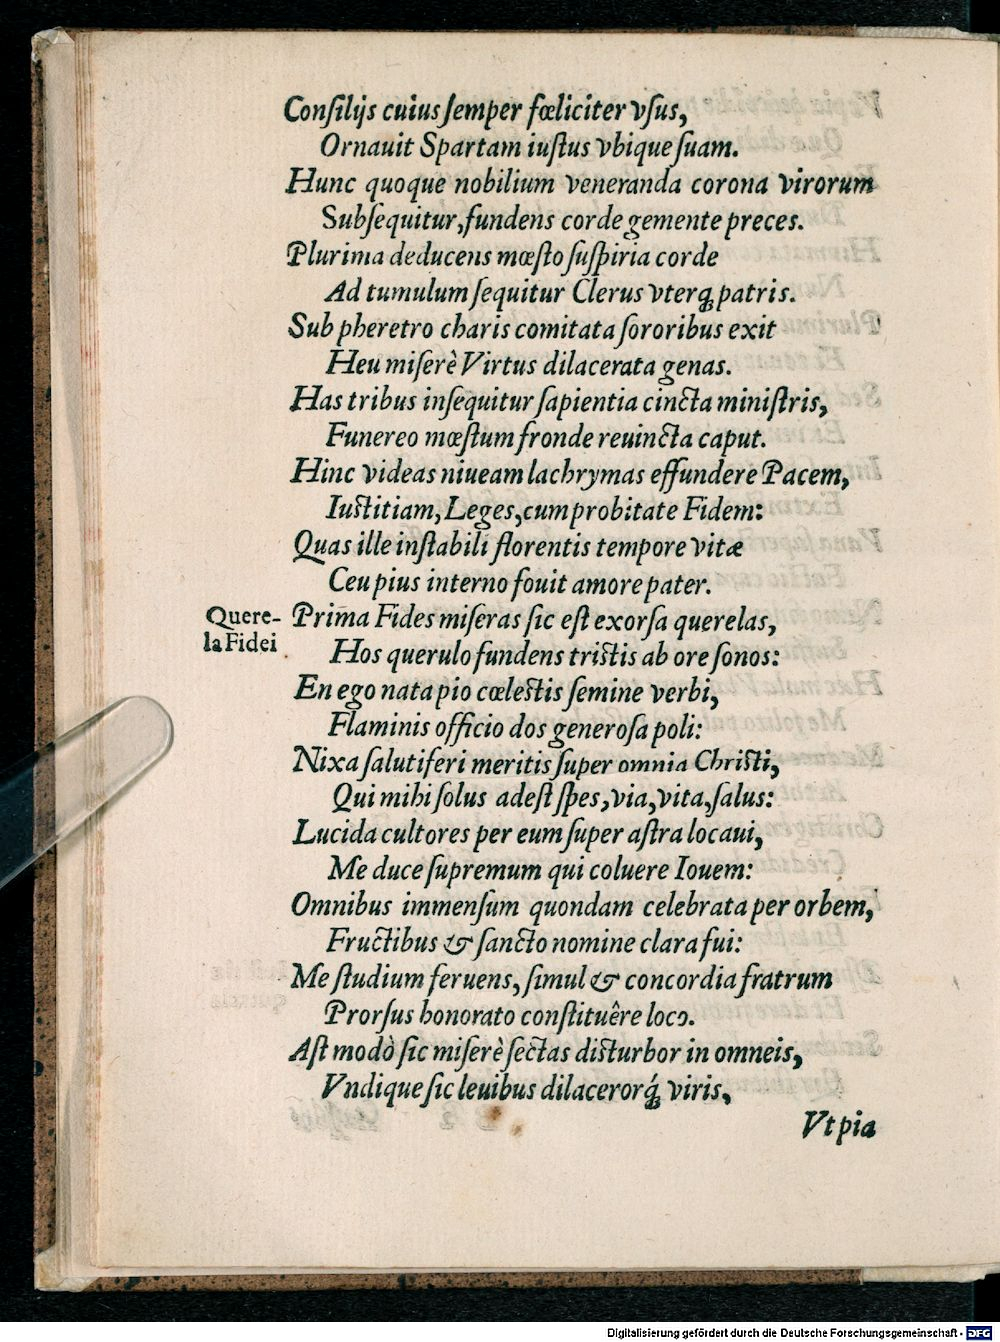 Conſilijs cuius ſemper fœliciter vſus,
Ornauit Spartam iuſtus vbique ſuam.
Hunc quoque nobilium veneranda corona virorum
Subſequitur, fundens corde gemente preces.
Plurima deducens mœſto ſuſpiria corde
Ad tumulum ſequitur Clerus vterq́ꝫ patris.
Sub pheretro charis comitata ſororibus exit
Heu miſerè Virtus dilacerata genas.
Has tribus inſequitur ſapientia cincta miniſtris,
Funereo mœſtum fronde reuincta caput.
Hinc videas niueam lachrymas effundere Pacem,
Iuſtitiam, Leges, cum probitate Fidem:
Quas ille inſtabili florentis tempore vitæ
Ceu pius interno fouit amore pater.
Quere-
la Fidei
Prima Fides miſeras ſic eſt exorſa querelas,
Hos querulo fundens triſtis ab ore ſonos:
En ego nata pio cœleſtis ſemine verbi,
Flaminis officio dos generoſa poli:
Nixa ſalutiferi meritis ſuper omnia Chriſti,
Qui mihi ſolus adeſt ſpes, via, vita, ſalus:
Lucida cultores per eum ſuper aſtra locaui,
Me duce ſupremum qui coluere Iouem:
Omnibus immenſum quondam celebrata per orbem,
Fructibus & ſancto nomine clara fui:
Me ſtudium feruens, ſimul & concordia fratrum
Prorſus honorato conſtituêre loco.
Aſt modò ſic miſerè ſectas diſturbor in omneis,
Vndique ſic leuibus dilacerorq́ꝫ viris,
Vt pia
Digitalisierung gefördert durch die Deutsche Forschungsgemeinschaft - DFG